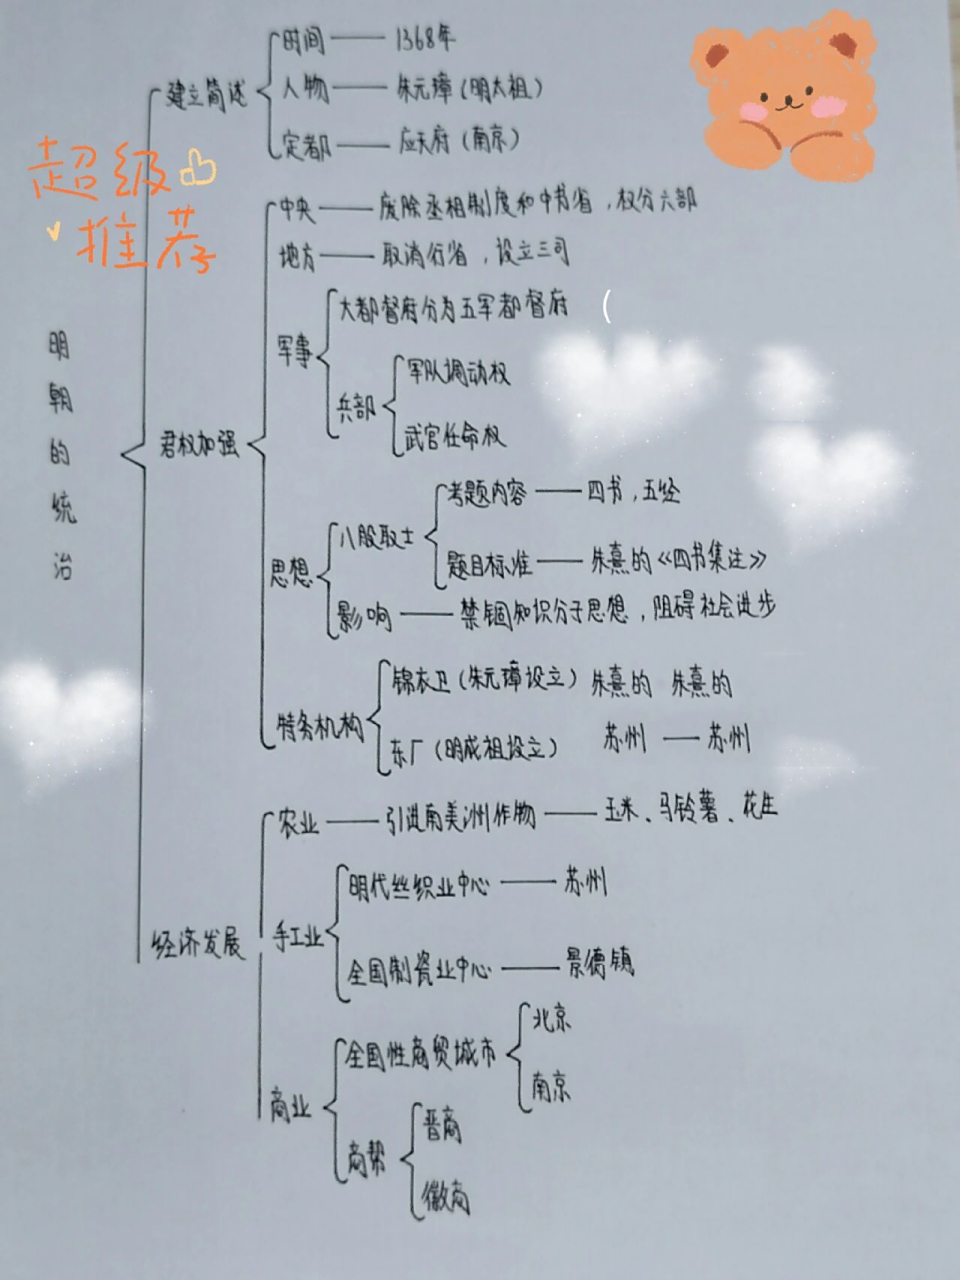 超级
推荐
明朝的统治
建立简述
时间 —— 1368年
人物 —— 朱元璋(明太祖)
定都 —— 应天府(南京)
君权加强
中央 —— 废除丞相制度和中书省,权分六部
地方 —— 取消行省,设立三司
军事
大都督府分为五军都督府 (
兵部
军队调动权
武官任命权
思想
八股取士
考题内容 —— 四书,五经
题目标准 —— 朱熹的《四书集注》
影响 —— 禁锢知识分子思想,阻碍社会进步
特务机构
锦衣卫(朱元璋设立) 朱熹的 朱熹的
东厂(明成祖设立) 苏州 —— 苏州
经济发展
农业 —— 引进南美洲作物 —— 玉米、马铃薯、花生
手工业
明代丝织业中心 —— 苏州
全国制瓷业中心 —— 景德镇
商业
全国性商贸城市
北京
南京
商帮
晋商
徽商